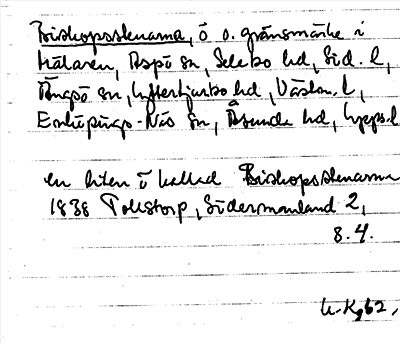 Biskopsstenarna, ö o. gränsmärke i
Mälaren, Aspö sn, Selebo hd, Söd. l,
Ängsö sn, Yttertjurbo hd, Västm. l,
Enköpings-Näs sn, Åsunda hd, Upps. l
en liten ö kallad Biskopsstenarna
1838 Tollstorp, Södermanland 2,
s. 4.
62,